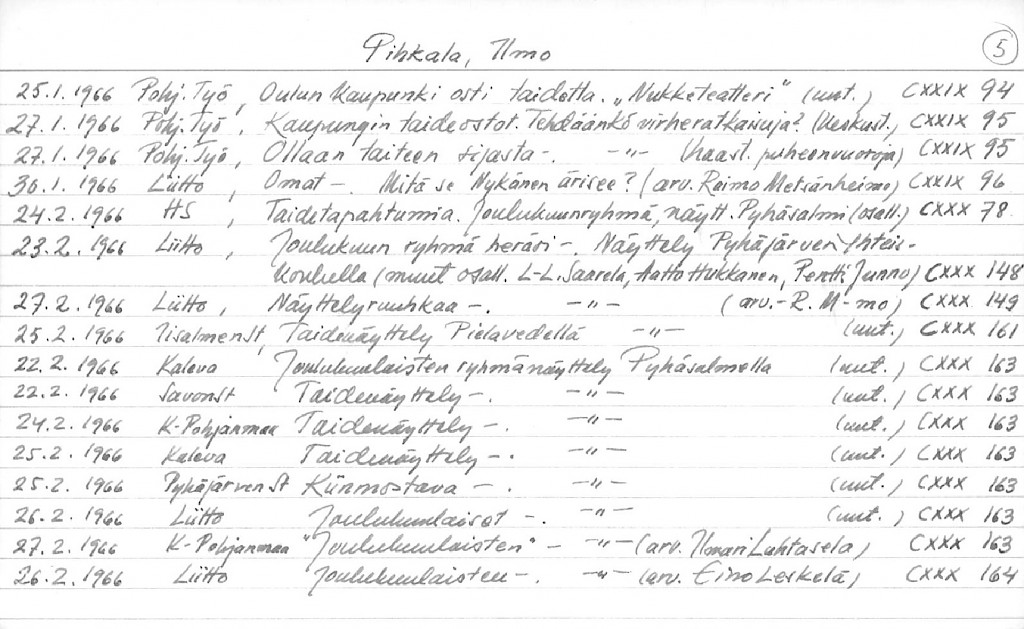 Pihkala, Ilmo 5
25.1.1966 Pohj. Työ, Oulun kaupunki osti taidetta. „Nukketeatteri" (uut.) CXXIX 94
27.1.1966 Pohj. Työ, Kaupungin taideostot. Tehdäänkö virheratkaisuja? (Keskust.) CXXIX 95
27.1.1966 Pohj. Työ, Ollaan taiteen sijasta -. -"- (haast. puheenvuoroja) CXXIX 95
30.1.1966 Liitto, Omat -. Mitä se Nykänen ärisee? (arv. Reimo Metsänheimo) CXXIX 96
24.2.1966 HS, Taidetapahtumia. Joulukuunryhmä, näytt. Pyhäsalmi (osall.) CXXX 78
23.2.1966 Liitto, Joulukuun ryhmä heräsi -. Näyttely Pyhäjärven Yhteis-
koululla (muut osall. L-L. Saarela, Aatto Hukkanen, Pentti Junno) CXXX 148
27.2.1966 Liitto, Näyttelyruuhkaa -. -"- (arv.- R. M-mo) CXXX 149
25.2.1966 Iisalmen St, Taidenäyttely Pielavedellä -"- (uut.) CXXX 161
22.2.1966 Kaleva Joulukuulaisten ryhmänäyttely Pyhäsalmella (uut.) CXXX 163
22.2.1966 Savon St Taidenäyttely -. -"- (uut.) CXXX 163
24.2.1966 K-Pohjanmaa Taidenäyttely -. -"- (uut.) CXXX 163
25.2.1966 Kaleva Taidenäyttely -. -"- (uut.) CXXX 163
25.2.1966 Pyhäjärven St Kiinnostava -. -"- (uut.) CXXX 163
26.2.1966 Liitto Joulukuulaiset -. -"- (uut.) CXXX 163
27.2.1966 K-Pohjanmaa "Joulukuulaisten" - -"- (arv. Ilmari Luhtasela) CXXX 163
26.2.1966 Liitto Joulukuulaisten -. -"- (arv. Eino Leskelä) CXXX 164